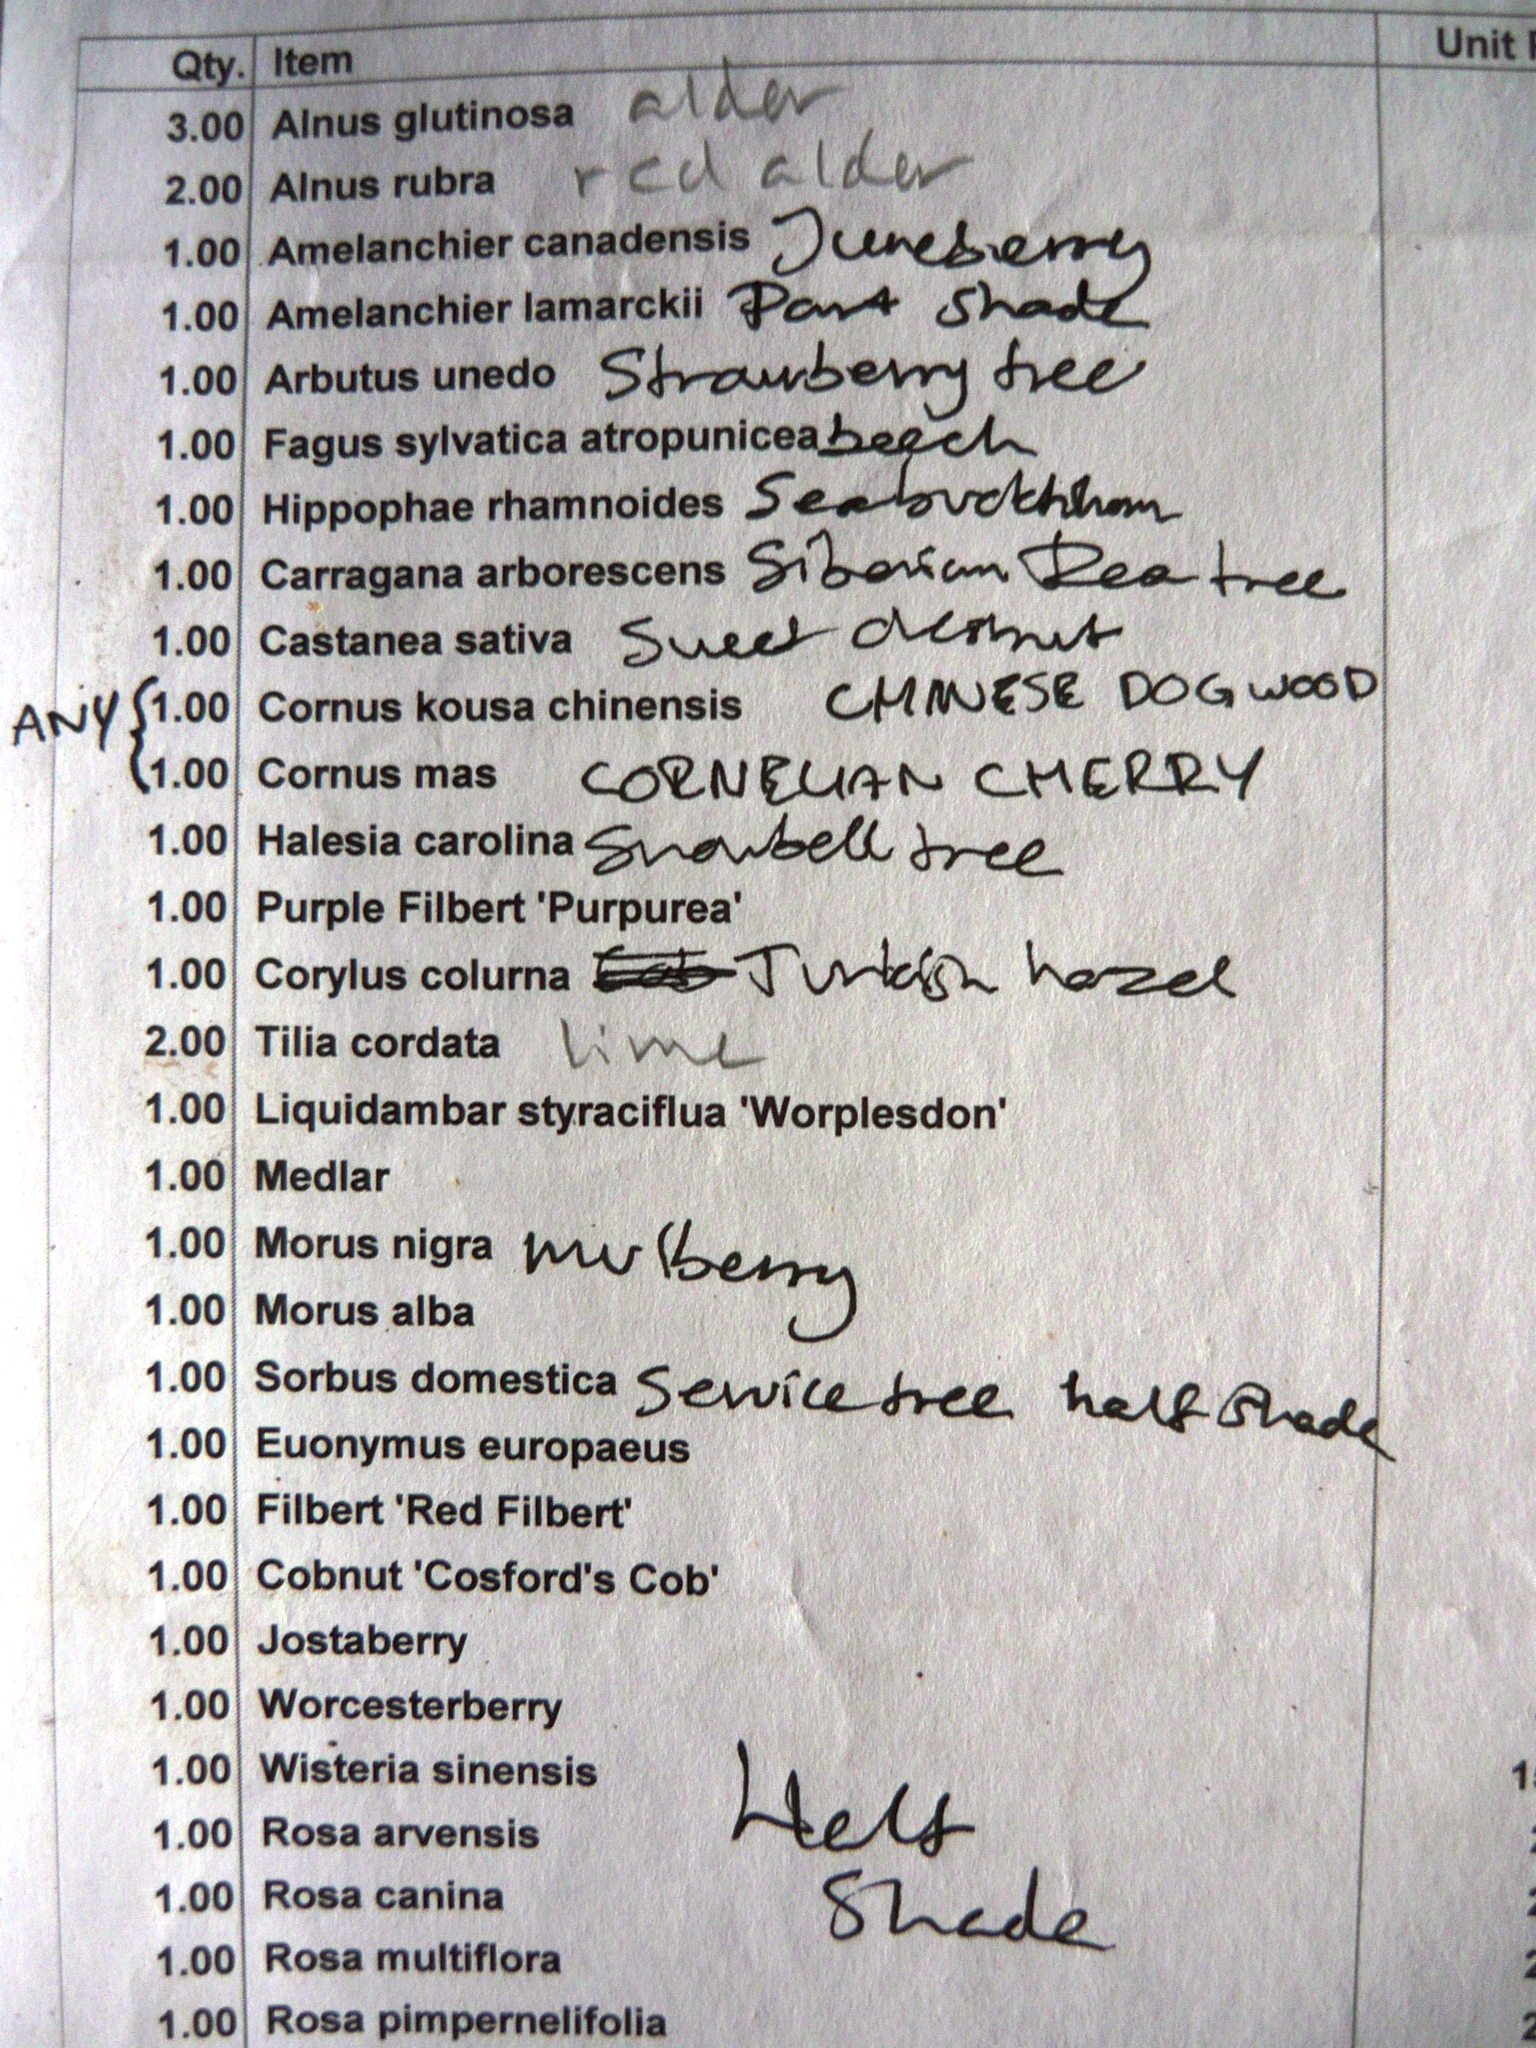 Qty. Item Unit
3.00 Alnus glutinosa alder
2.00 Alnus rubra red alder
1.00 Amelanchier canadensis Juneberry
1.00 Amelanchier lamarckii Part shade
1.00 Arbutus unedo Strawberry tree
1.00 Fagus sylvatica atropunicea beech
1.00 Hippophae rhamnoides Seabuckthorn
1.00 Carragana arborescens Siberian Pea tree
1.00 Castanea sativa Sweet chestnut
ANY { 1.00 Cornus kousa chinensis CHINESE DOGWOOD
1.00 Cornus mas CORNELIAN CHERRY
1.00 Halesia carolina Snowbell tree
1.00 Purple Filbert 'Purpurea'
1.00 Corylus colurna Turkish hazel
2.00 Tilia cordata lime
1.00 Liquidambar styraciflua 'Worplesdon'
1.00 Medlar
1.00 Morus nigra mulberry
1.00 Morus alba
1.00 Sorbus domestica Service tree half shade
1.00 Euonymus europaeus
1.00 Filbert 'Red Filbert'
1.00 Cobnut 'Cosford's Cob'
1.00 Jostaberry
1.00 Worcesterberry
1.00 Wisteria sinensis
1.00 Rosa arvensis Half
1.00 Rosa canina Shade
1.00 Rosa multiflora
1.00 Rosa pimpernelifolia